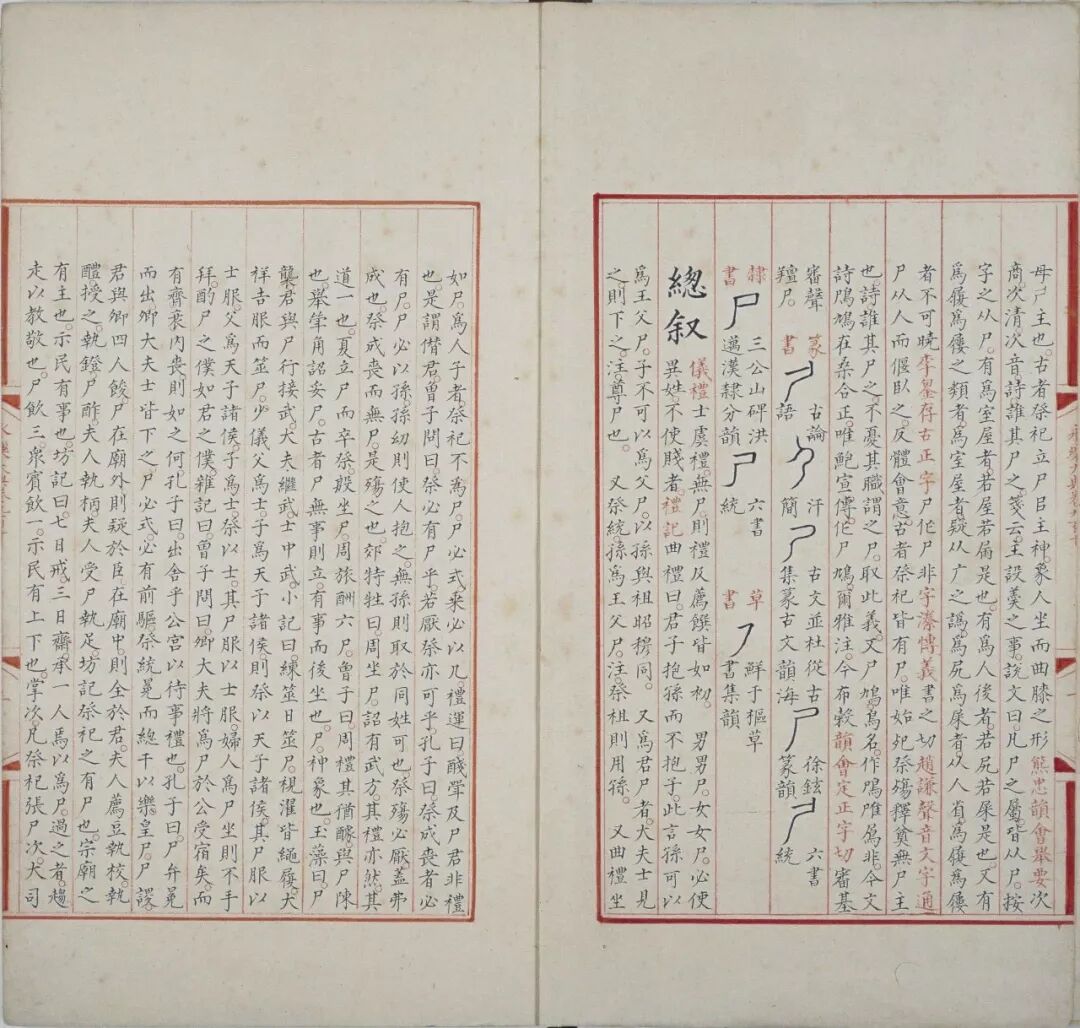 母尸主也。古者祭祀立尸㠯主神。象人坐而曲膝之形熊忠韻會舉要次
商次清次音詩誰其尸之。箋云主設羹之事。說文曰。凡尸之屬。皆从尸。按
字之从尸。有爲室屋者。若屋若屚是也。有爲人後者。若尻若𡱂是也。又有
爲履爲屨之類者。爲室屋者。疑从广之譌。爲尻爲𡱂者。从人省。爲履爲屨
者不可曉李銎存古正字尸作尸非字潫愽義書之切趙謙聲音文字通
尸从人而偃臥之。反體會意。古者祭祀皆有尸。唯始死祭殤釋奠無尸。主
也。詩誰其尸之。不憂其職。謂之尸。取此義。又尸鳩鳥名。作鳲鳲爲非。今文
詩鳲鳩在桑合正。唯鮑宣傳作尸鳩。爾雅注。今布穀韻會定正字切審基
審聲
羶尸。
篆
書
古論
語
汗
簡
古文並杜從古
集篆古文韻海
徐鉉
篆韻
六書
統
隸
書
尸
三公山碑洪
邁漢隸分韻
尸
六書
統
草
書
鮮于樞草
書集韻
總叙
儀禮士虞禮。無尸。則禮及薦饌皆如初。 男男尸。女女尸。必使
異姓。不使賤者。禮記曲禮曰。君子抱孫而不抱子。此言孫可以
爲王父尸。子不可以爲父尸。以孫與祖昭穆同。 又爲君尸者。大夫士見
之則下之。注。尊尸也。 又祭統孫爲王父尸。注。祭祖則用孫。 又曲禮坐
如尸。爲人子者。祭祀不爲尸。尸必式乘必以几。禮運曰醆斝及尸君非禮
也。是謂僭君。曾子問曰。祭必有尸乎。若厭祭亦可乎。孔子曰。祭成喪者必
有尸。尸必以孫。孫幼則使人抱之。無孫則取於同姓可也。祭殤必厭。蓋弗
成也。祭成喪而無尸。是殤之也。郊特牲曰。周坐尸。詔有武方。其禮亦然。其
道一也。夏立尸而卒祭。殷坐尸。周旅酬六尸。曾子曰。周禮其猶醵與尸陳
也。舉斝角詔妥尸。古者尸無事則立。有事而後坐也。尸。神象也。玉藻曰。尸
襲君與尸行接武。大夫繼武。士中武。小記曰。練筮日筮尸。視濯皆繩屨。大
祥吉服而筮尸。少儀父爲士。子爲天子諸侯。則祭以天子諸侯。其尸服以
士服。父爲天子諸侯。子爲士。祭以士。其尸服以士服婦人爲尸坐則不手
拜。酌尸之僕如君之僕。雜記曰。曾子問曰。卿大夫將爲尸於公受宿矣。而
有齊衰內喪。則如之何。孔子曰。出舍乎公宮以待事禮也。孔子曰尸弁冕
而出卿大夫士皆下之。尸必式。必有前驅。祭統冕而總干以樂皇尸。尸謖
君與卿四人餕。尸在廟外則疑於臣。在廟中。則全於君。夫人薦豆執校。執
醴授之。執鐙尸酢夫人執柄夫人受尸執足。坊記祭祀之有尸也。宗廟之
有主也。示民有事也。坊記曰。七日戒。三日齋。承一人焉以爲尸。過之者。趨
走以教敬也。尸飲三。衆賓飲一。示民有上下也。掌次。凡祭祀張尸次。大司